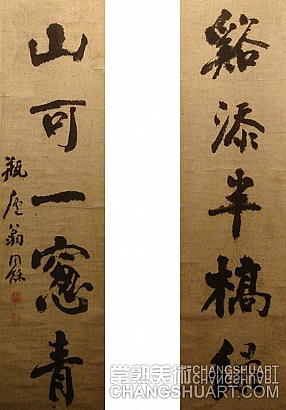 谿添半槁綠
山可一窻青
瓶廬翁同龢
常熟美術 CHANGSHUART
CHANGSHUART.COM